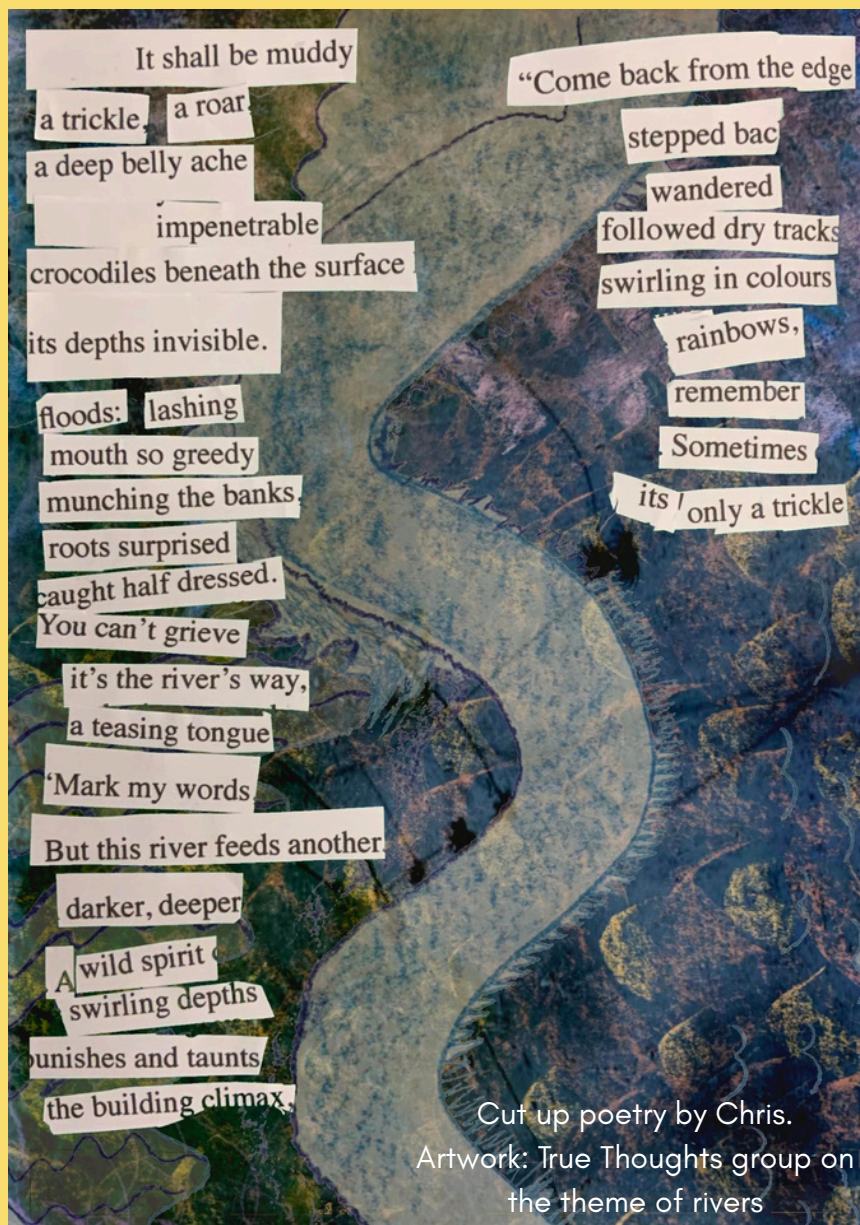 It shall be muddy
a trickle, a roar
a deep belly ache
impenetrable
crocodiles beneath the surface
its depths invisible.
floods: lashing
mouth so greedy
munching the banks,
roots surprised
caught half dressed.
You can't grieve
it's the river's way,
a teasing tongue
‘Mark my words
But this river feeds another
darker, deeper
A wild spirit
swirling depths
punishes and taunts
the building climax,
“Come back from the edge
stepped bac
wandered
followed dry tracks
swirling in colours
rainbows,
remember
Sometimes
its only a trickle
Cut up poetry by Chris.
Artwork: True Thoughts group on
the theme of rivers